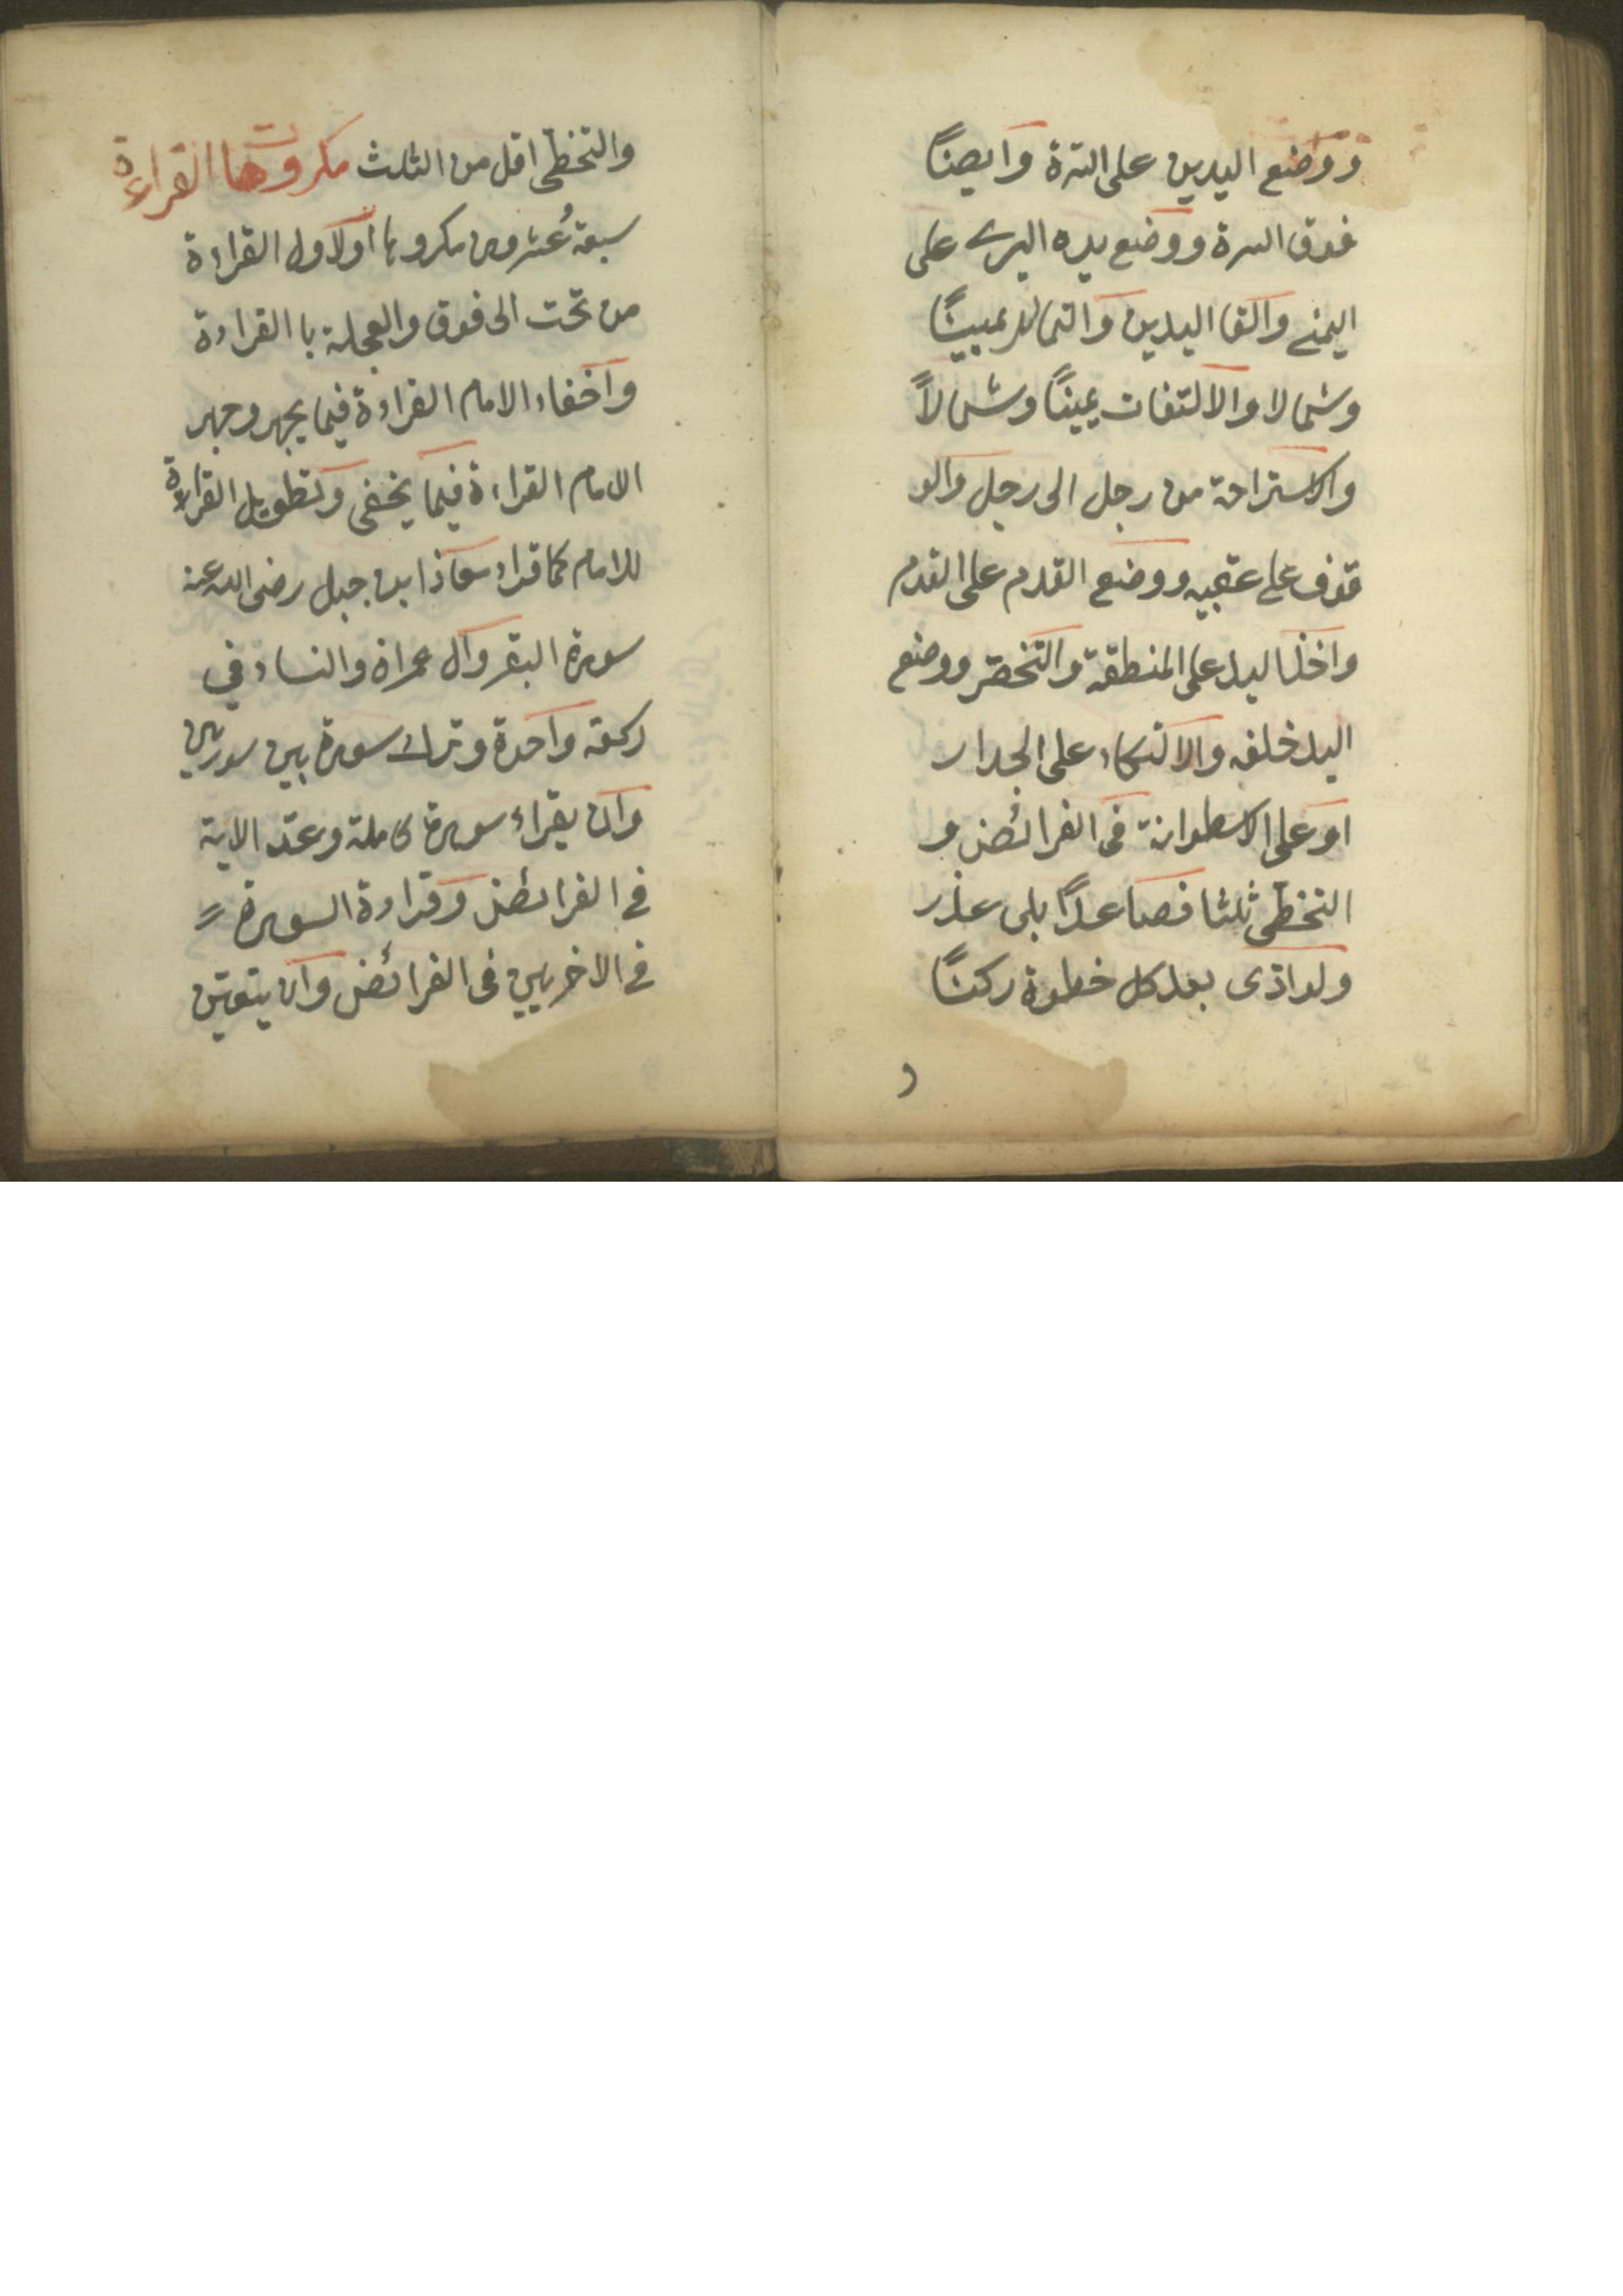 ووضع اليدين على السرة وايضاً
فوق السرة ووضع يده اليسرى على
اليمنى والقا اليدين والتمايل يميناً
وشمالا والالتفات يميناً وشمالاً
والاستراحة من رجل الى رجل والو
قوف على عقبيه ووضع القدم على القدم
واخذ اليد على المنطقة والتخصر ووضع
اليد خلفه والاتكاء على الجدار
او على الاسطوانة فى الفرائض و
التخطى ثلثا فصاعداً بلى عذر
ولو ادى بعد كل خطوة ركناً
و
والتخطى اقل من الثلث مكروهات القراءة
سبعة عشر ومن اولا ول القراءة
من تحت الى فوق والعجلة با القراءة
واخفاء الامام القراءة فيما يجهر وجهر
الامام القراءة فيما يخفى وتطويل القراءة
للامام كما قراء معاذا بن جبل رضى الله عنه
سورة البقر وال عمران والنساء في
ركعة واحدة وترك سورة بين سورتين
وان يقراء سورة كاملة وعد الاية
في الفرائض وقراءة السورة
في الاخريين فى الفرائض وان يتعين